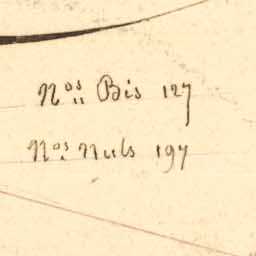 Nos Bis 127
Nos Nuls 197